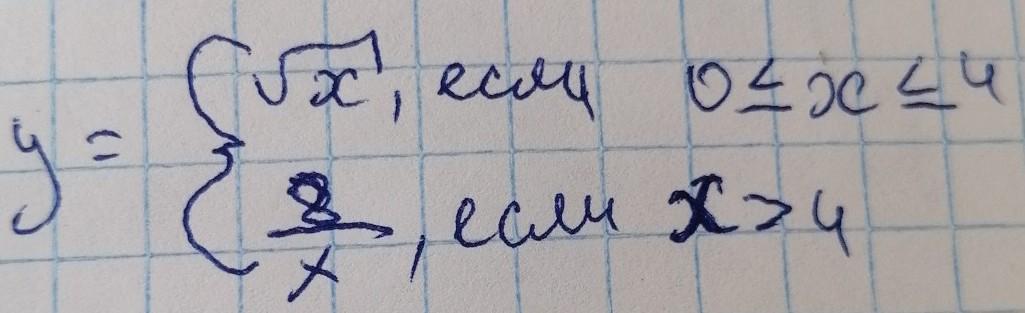 y = { √x, если 0 ≤ x ≤ 4
8/x, если x > 4